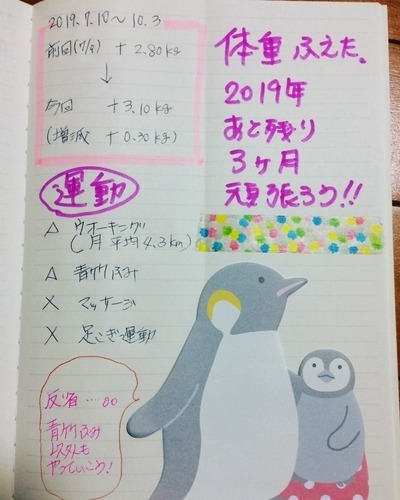 2019.7.10〜10.3
前回(7/9) +2.80kg
↓
今回 +3.10kg
(増減 +0.30kg)
体重ふえた、
2019年
あと残り
3ヶ月
頑張ろう!!
運動
△ ウオーキング
(月平均4.3km)
△ 青竹ふみ
× マッサージ
× 足こぎ運動
反省…∞
青竹ふみ
以外も
やっていこう!